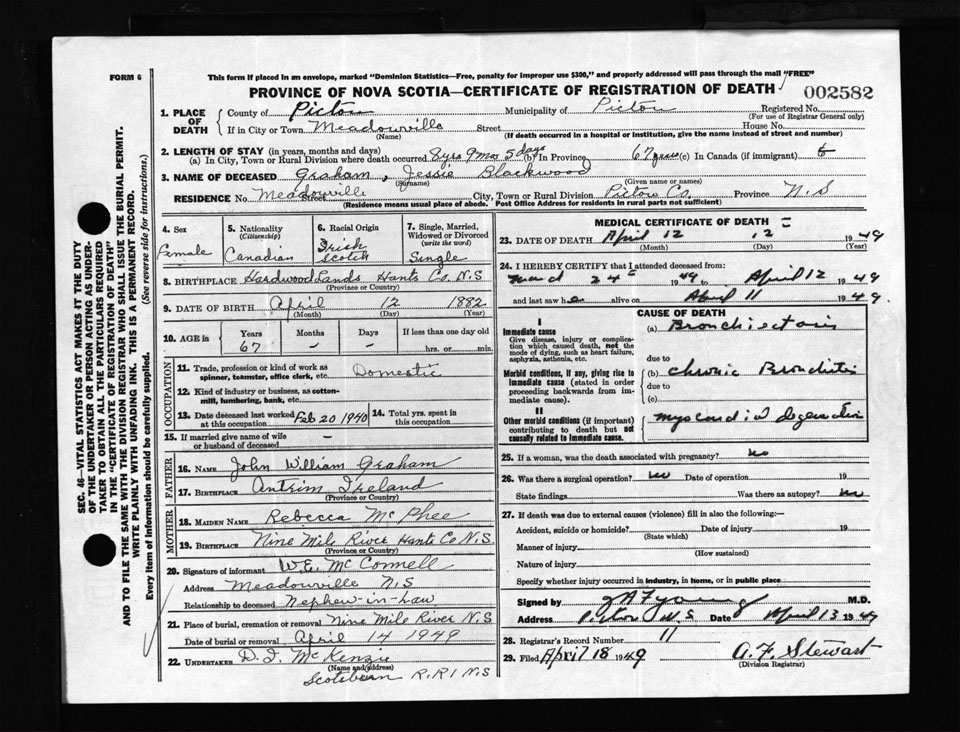 FORM 6
This form if placed in an envelope, marked "Dominion Statistics—Free, penalty for improper use $300," and properly addressed will pass through the mail "FREE"
PROVINCE OF NOVA SCOTIA—CERTIFICATE OF REGISTRATION OF DEATH 002582
1. PLACE OF DEATH County of Pictou Municipality of Pictou Registered No.
(For use of Registrar General only)
If in City or Town Meadowville Street House No.
(Name) (If death occurred in a hospital or institution, give the name instead of street and number)
2. LENGTH OF STAY (in years, months and days)
(a) In City, Town or Rural Division where death occurred 8 yrs 9 mos 5 days (b) In Province 67 years (c) In Canada (if immigrant)
3. NAME OF DECEASED Graham, Jessie Blackwood
(Surname) (Given name or names)
RESIDENCE No. Meadowville Street City, Town or Rural Division Pictou Co. Province N.S
(Residence means usual place of abode. Post Office Address for residents in rural parts not sufficient)
4. Sex Female
5. Nationality (Citizenship) Canadian
6. Racial Origin Irish Scotch
7. Single, Married, Widowed or Divorced (write the word) Single
8. BIRTHPLACE Hardwood Lands Hants Co. N.S
(Province or Country)
9. DATE OF BIRTH April 12 1882
(Month) (Day) (Year)
10. AGE in Years 67 Months – Days – If less than one day old hrs. or min.
OCCUPATION
11. Trade, profession or kind of work as spinner, teamster, office clerk, etc. Domestic
12. Kind of industry or business, as cotton-mill, lumbering, bank, etc.
13. Date deceased last worked at this occupation Feb 20 1940
14. Total yrs. spent in this occupation
15. If married give name of wife or husband of deceased –
FATHER
16. NAME John William Graham
17. BIRTHPLACE Antrim Ireland
(Province or Country)
MOTHER
18. MAIDEN NAME Rebecca McPhee
19. BIRTHPLACE Nine Mile River Hants Co. N.S.
(Province or Country)
20. Signature of informant W.E. McConnell
Address Meadowville N.S
Relationship to deceased Nephew-in-Law
21. Place of burial, cremation or removal Nine Mile River N.S
Date of burial or removal April 14 1949
22. UNDERTAKER D. I. McKenzie
(Name and address)
Scotsburn R.R 1 N.S
MEDICAL CERTIFICATE OF DEATH
23. DATE OF DEATH April 12 12 1949
(Month) (Day) (Year)
24. I HEREBY CERTIFY that I attended deceased from:
March 24 1949 to April 12 1949
and last saw h alive on April 11 1949.
CAUSE OF DEATH
I
Immediate cause
Give disease, injury or complication which caused death, not the mode of dying, such as heart failure, asphyxia, asthenia, etc.
(a) Bronchiectasis
due to
Morbid conditions, if any, giving rise to immediate cause (stated in order proceeding backwards from immediate cause).
(b) Chronic Bronchitis
due to
(c)
II
Other morbid conditions (if important) contributing to death but not causally related to immediate cause.
myocardial Degeneration
25. If a woman, was the death associated with pregnancy? no
26. Was there a surgical operation? no Date of operation 19
State findings Was there an autopsy? no
27. If death was due to external causes (violence) fill in also the following:—
Accident, suicide or homicide? Date of injury 19
(State which)
Manner of injury
(How sustained)
Nature of injury
Specify whether injury occurred in industry, in home, or in public place
Signed by Young M.D.
Address Pictou N.S. Date April 13 1949
28. Registrar's Record Number 11
29. Filed April 18 1949 A. F. Stewart
(Division Registrar)
SEC. 46—VITAL STATISTICS ACT MAKES IT THE DUTY
OF THE UNDERTAKER OR PERSON ACTING AS UNDER-
TAKER TO OBTAIN ALL THE PARTICULARS REQUIRED
IN THE "CERTIFICATE OF REGISTRATION OF DEATH"
AND TO FILE THE SAME WITH THE DIVISION REGISTRAR WHO SHALL ISSUE THE BURIAL PERMIT.
WRITE PLAINLY WITH UNFADING INK. THIS IS A PERMANENT RECORD.
Every item of information should be carefully supplied. (See reverse side for instructions.)